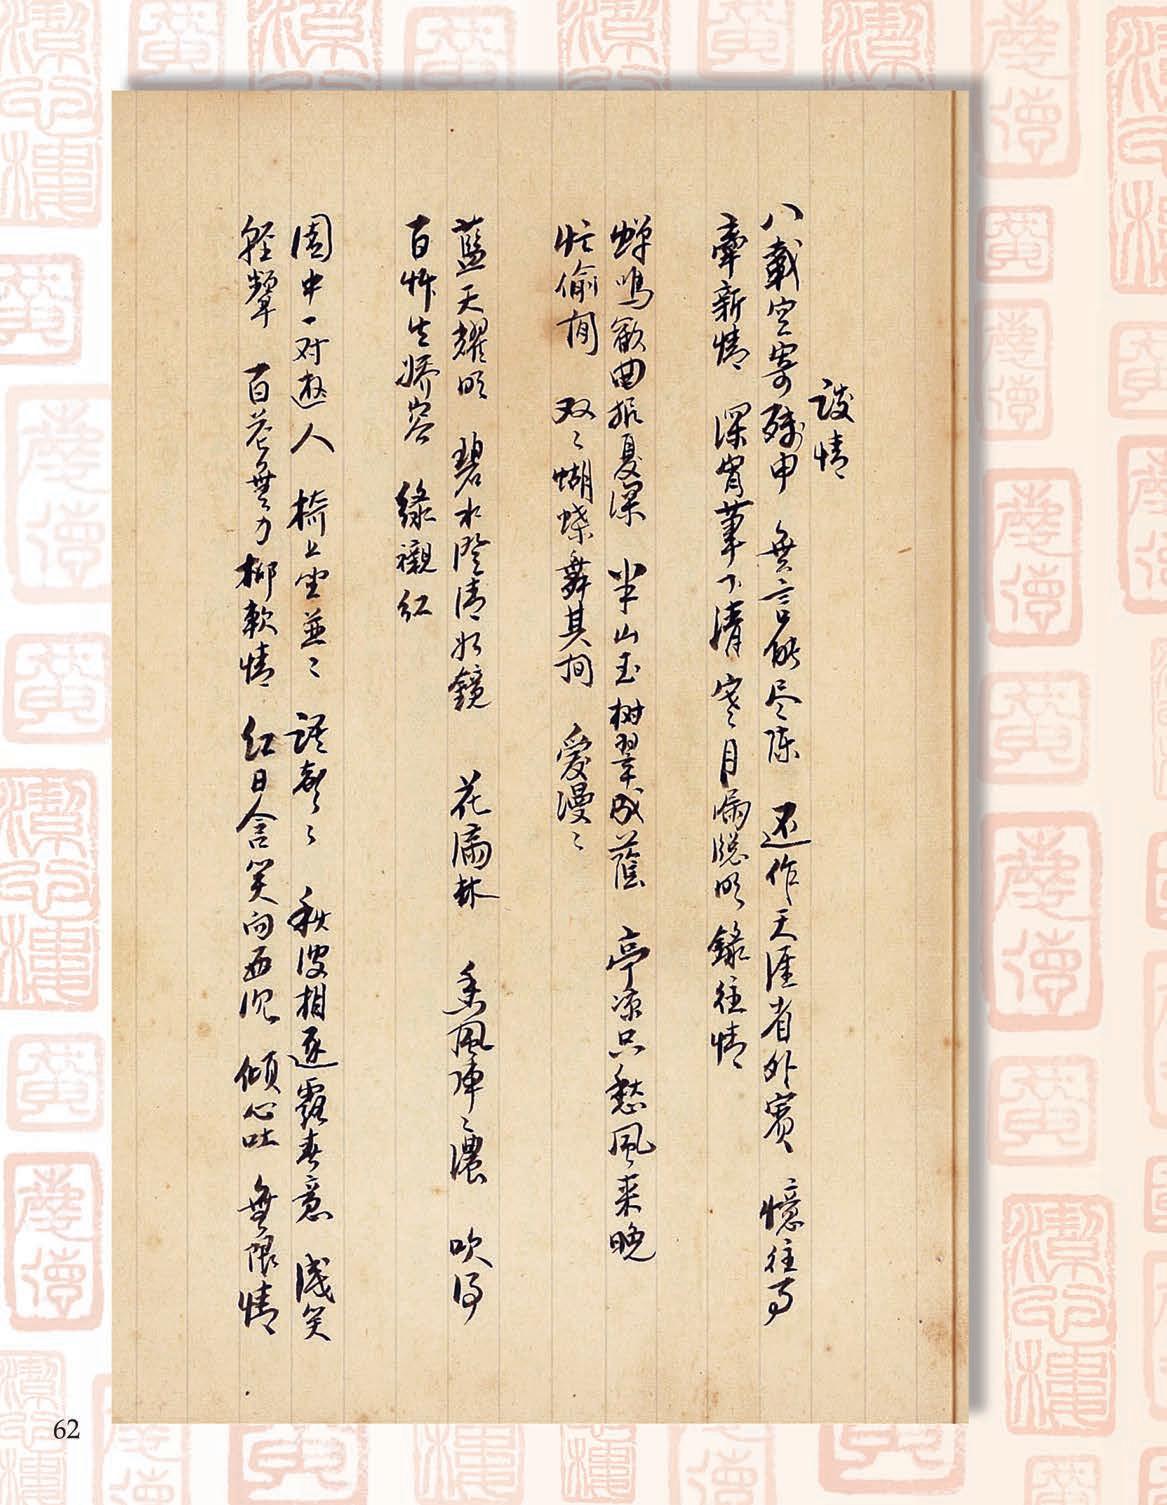 談情
八載空寄殘申 無言能尽陳 还作天涯省外賓 憶往事
牽新情 深宵筆下清 寒月滿牕明 錄往情
蟬鳴歌曲報夏深 半山玉树翠成蔭 亭凉只愁風来晚
忙偷閒 双〻蝴蝶舞其间 爱漫〻
藍天耀明 碧水澄清如鏡 花满林 香風陣〻濃 吹得
百卉生嬌容 綠襯紅
園中一对遊人 椅上坐並〻 語歡〻 秋波相逐露春意 浅笑
輕顰 百花無力柳軟情 紅日含笑向西沉 傾心吐 無限情
62